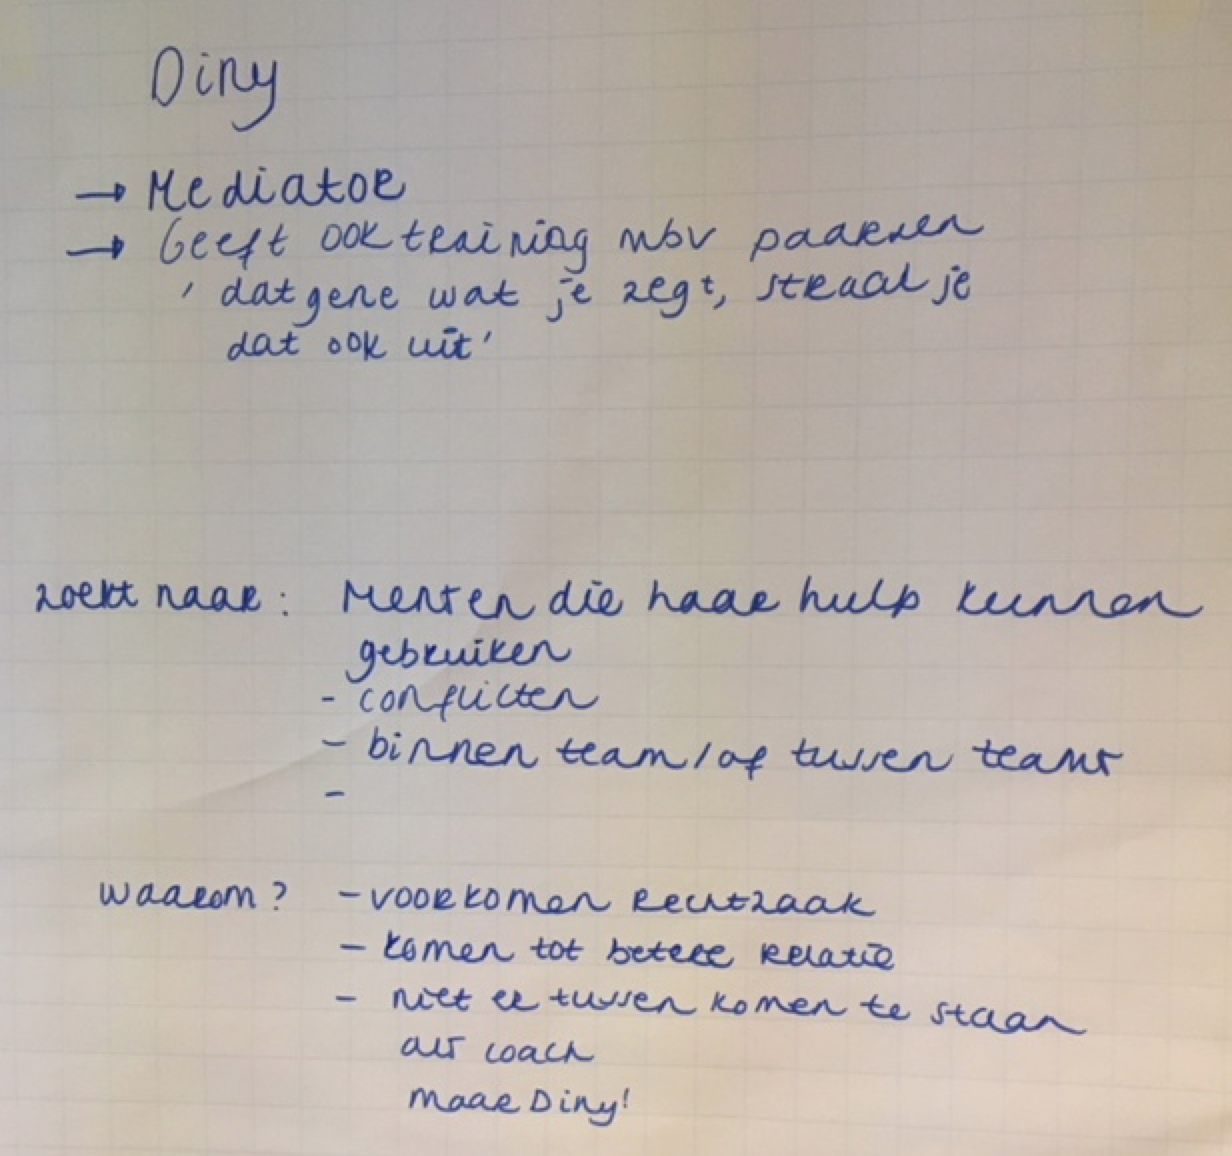 Diny
→ Mediator
→ Geeft ook training mbv paarden
'datgene wat je zegt, straal je
dat ook uit'
zoekt naar: Mensen die haar hulp kunnen
gebruiken
- conflicten
- binnen team/of tussen teams
-
waarom? - voorkomen rechtzaak
- komen tot betere relatie
- niet er tussen komen te staan
als coach
maar Diny!